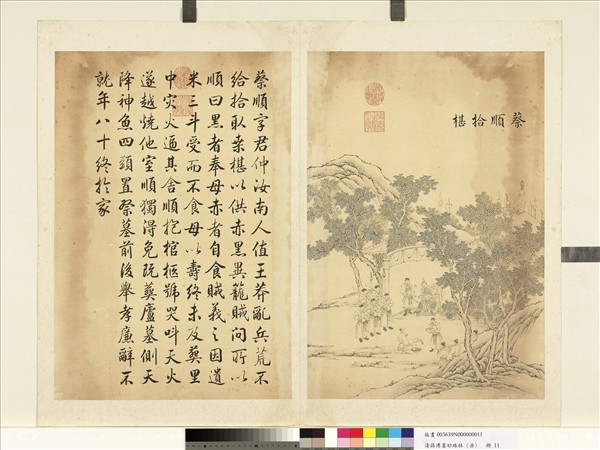 蔡順拾椹
蔡順字君仲汝南人值王莽亂兵荒不
給拾取桑椹以供赤黑異籠賊問所以
順曰黑者奉母赤者自食賊義之因遺
米三斗受而不食母以壽終未及葬里
中灾火逼其舍順抱棺柩號哭呌天火
遂越燒他室順獨得免既葬廬墓側天
降神魚四頭置祭墓前後舉孝廉辭不
就年八十終於家
故畫 003639N000000011
冊 11